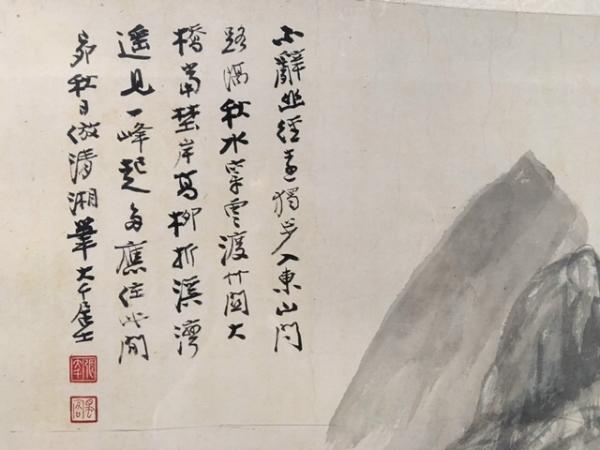 不辭幽徑遠獨步入東山問
路隨秋水穿雲渡竹關大
橋當埜岸高柳折溪灣
遥見一峰起多應住此間
夘秋日倣清湘筆大千居士